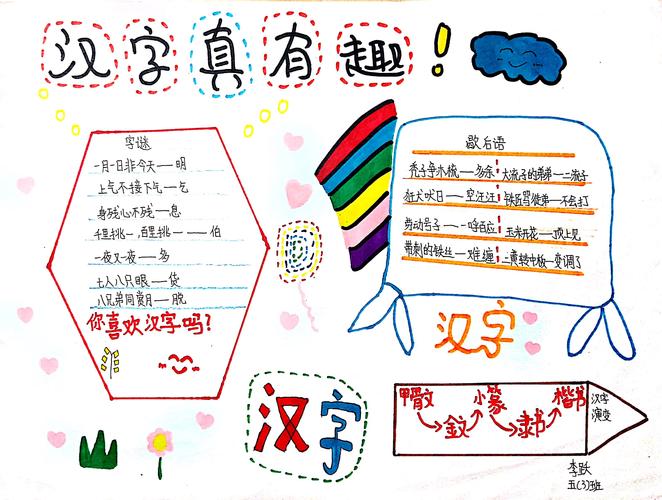 汉字真有趣!
字谜
一月一日非今天——明
上气不接下气——乞
身残心不残——息
千里挑一,百里挑一——伯
一夜又一夜——多
七人八只眼——货
八兄弟同赏月——脱
你喜欢汉字吗?
歇后语
秃子争木梳——多余
大流子的弟弟——二流子
狂犬吠日——空汪汪
铁匠骂徒弟——不会打
劳动号子——一呼百应
玉米开花——顶上见
带刺的铁丝——难缠
二黄转中板——变调了
汉字
汉字
甲骨文
金文
小篆
隶书
楷书
汉字
演变
李跃
五(3)班